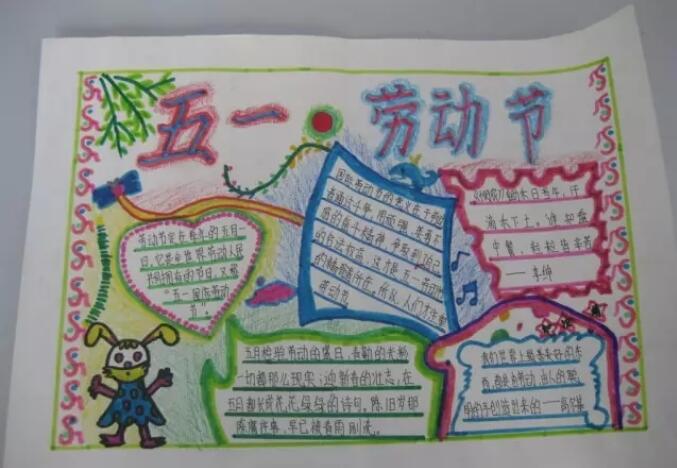 五一 劳动节
劳动节定在每年的五月一
日,它是全世界劳动人民
共同拥有的节日,又称
"五一国际劳动
节"。
国际劳动节的意义在于劳动
者通过斗争,用顽强、英勇不
屈的奋斗精神,争取到自己
的合法权益,
《悯农》锄禾日当午,汗
滴禾下土。谁知盘
中餐,粒粒皆辛苦
——李绅
五月检验劳动的盛日,春勤的
一切都那么现实;迎新春的壮志,在
五月都长成花花绿绿的诗句。除旧岁那
早已被春雨
我们世界上最美好的东
西,都是由劳动、由人的聪
明的手创造出来的——高尔基